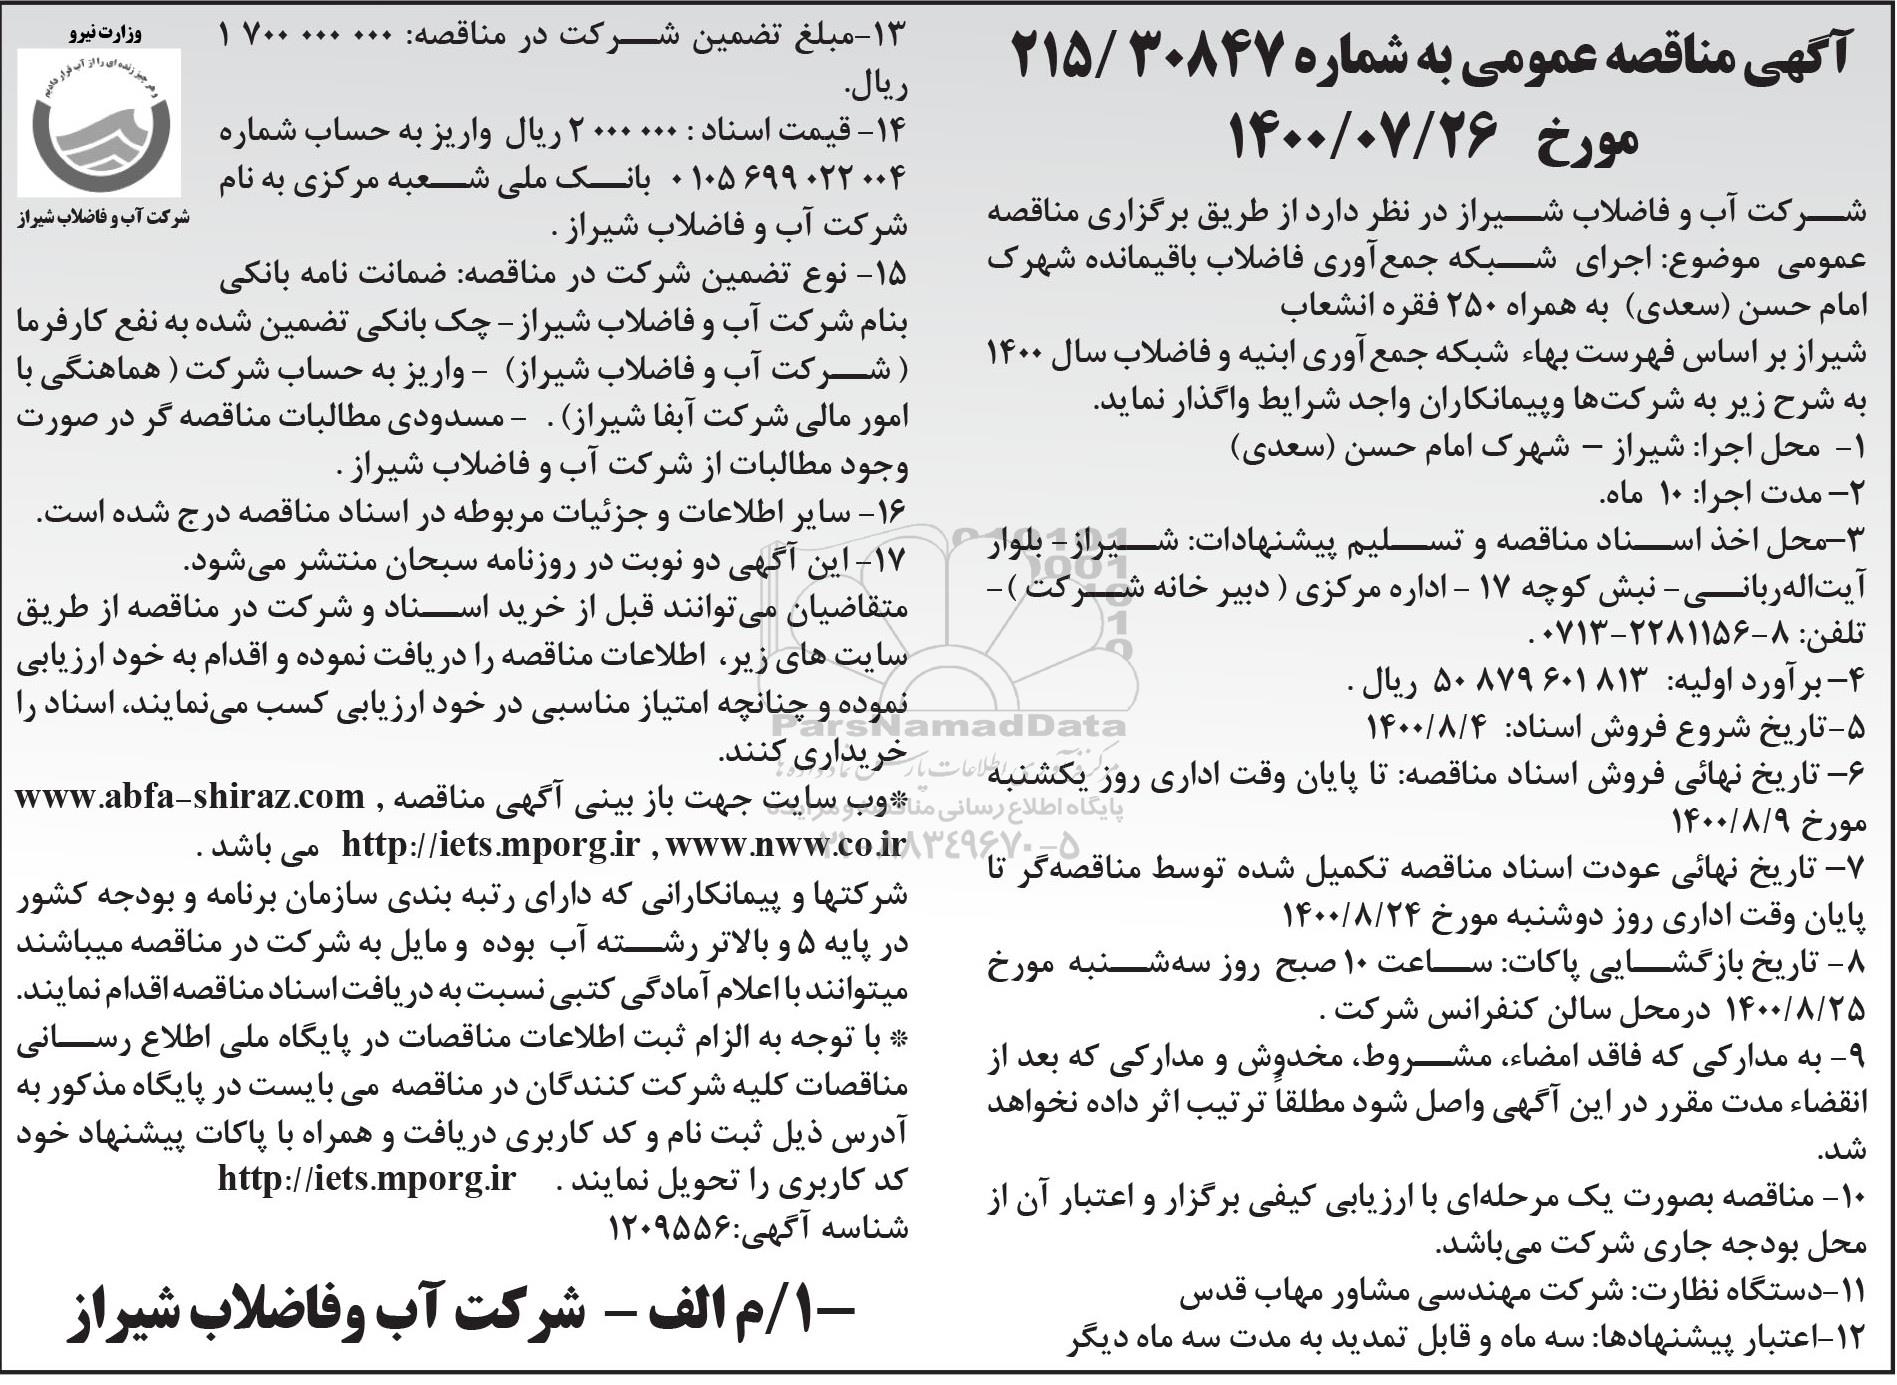 آگهی مناقصه عمومی به شماره ۳۰۸۴۷ /۲۱۵
مورخ ۱۴۰۰/۰۷/۲۶
شرکت آب و فاضلاب شیراز در نظر دارد از طریق برگزاری مناقصه
عمومی موضوع: اجرای شبکه جمع‌آوری فاضلاب باقیمانده شهرک
امام حسن (سعدی) به همراه ۲۵۰ فقره انشعاب
شیراز بر اساس فهرست بهاء شبکه جمع‌آوری ابنیه و فاضلاب سال ۱۴۰۰
به شرح زیر به شرکت‌ها وپیمانکاران واجد شرایط واگذار نماید.
۱- محل اجرا: شیراز – شهرک امام حسن (سعدی)
۲– مدت اجرا: ۱۰ ماه.
۳–محل اخذ اسناد مناقصه و تسلیم پیشنهادات: شیراز- بلوار
آیت‌اله‌ربانی– نبش کوچه ۱۷ - اداره مرکزی ( دبیر خانه شرکت )-
تلفن: ۸-۲۲۸۱۱۵۶-۰۷۱۳ .
۴– برآورد اولیه: ۸۱۳ ۶۰۱ ۸۷۹ ۵۰ ریال .
۵-تاریخ شروع فروش اسناد: ۱۴۰۰/۸/۴
۶– تاریخ نهائی فروش اسناد مناقصه: تا پایان وقت اداری روز یکشنبه
مورخ ۱۴۰۰/۸/۹
۷– تاریخ نهائی عودت اسناد مناقصه تکمیل شده توسط مناقصه‌گر تا
پایان وقت اداری روز دوشنبه مورخ ۱۴۰۰/۸/۲۴
۸- تاریخ بازگشایی پاکات: ساعت ۱۰ صبح روز سه‌شنبه مورخ
۱۴۰۰/۸/۲۵ درمحل سالن کنفرانس شرکت .
۹- به مدارکی که فاقد امضاء، مشروط، مخدوش و مدارکی که بعد از
انقضاء مدت مقرر در این آگهی واصل شود مطلقاً ترتیب اثر داده نخواهد
شد.
۱۰- مناقصه بصورت یک مرحله‌ای با ارزیابی کیفی برگزار و اعتبار آن از
محل بودجه جاری شرکت می‌باشد.
۱۱-دستگاه نظارت: شرکت مهندسی مشاور مهاب قدس
۱۲-اعتبار پیشنهادها: سه ماه و قابل تمدید به مدت سه ماه دیگر
وزارت نیرو
و هر چیز زنده ای را از آب قرار دادیم
شرکت آب و فاضلاب شیراز
۱۳-مبلغ تضمین شرکت در مناقصه: ۰۰۰ ۰۰۰ ۷۰۰ ۱
ریال.
۱۴- قیمت اسناد : ۰۰۰ ۰۰۰ ۲ ریال واریز به حساب شماره
۰۱۰۵۶۹۹۰۲۲۰۰۴ بانک ملی شعبه مرکزی به نام
شرکت آب و فاضلاب شیراز .
۱۵- نوع تضمین شرکت در مناقصه: ضمانت نامه بانکی
بنام شرکت آب و فاضلاب شیراز- چک بانکی تضمین شده به نفع کارفرما
( شرکت آب و فاضلاب شیراز) - واریز به حساب شرکت ( هماهنگی با
امور مالی شرکت آبفا شیراز) . - مسدودی مطالبات مناقصه گر در صورت
وجود مطالبات از شرکت آب و فاضلاب شیراز .
۱۶- سایر اطلاعات و جزئیات مربوطه در اسناد مناقصه درج شده است.
۱۷- این آگهی دو نوبت در روزنامه سبحان منتشر می‌شود.
متقاضیان می‌توانند قبل از خرید اسناد و شرکت در مناقصه از طریق
سایت های زیر، اطلاعات مناقصه را دریافت نموده و اقدام به خود ارزیابی
نموده و چنانچه امتیاز مناسبی در خود ارزیابی کسب می‌نمایند، اسناد را
خریداری کنند.
*وب سایت جهت باز بینی آگهی مناقصه , www.abfa-shiraz.com
http://iets.mporg.ir , www.nww.co.ir می باشد .
شرکتها و پیمانکارانی که دارای رتبه بندی سازمان برنامه و بودجه کشور
در پایه ۵ و بالاتر رشته آب بوده و مایل به شرکت در مناقصه میباشند
میتوانند با اعلام آمادگی کتبی نسبت به دریافت اسناد مناقصه اقدام نمایند.
* با توجه به الزام ثبت اطلاعات مناقصات در پایگاه ملی اطلاع رسانی
مناقصات کلیه شرکت کنندگان در مناقصه می بایست در پایگاه مذکور به
آدرس ذیل ثبت نام و کد کاربری دریافت و همراه با پاکات پیشنهاد خود
کد کاربری را تحویل نمایند . http://iets.mporg.ir
شناسه آگهی:۱۲۰۹۵۵۶
–۱/م الف – شرکت آب وفاضلاب شیراز
ParsNamadData
پایگاه اطلاع رسانی مناقصه و مزایده
۰۲۱-۸۸۳۴۹۶۷۰-۵